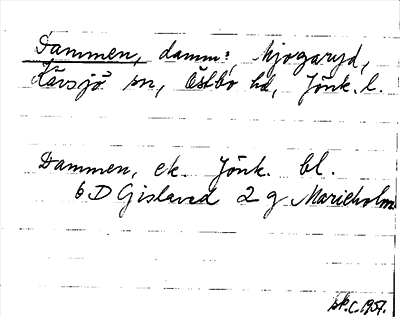 Dammen, damm: Mjogaryd,
Kävsjö sn, Östbo hd, Jönk. l.
Dammen, ek. Jönk. bl.
6 D Gislaved 2 g Marieholm
sk. c. 1957.